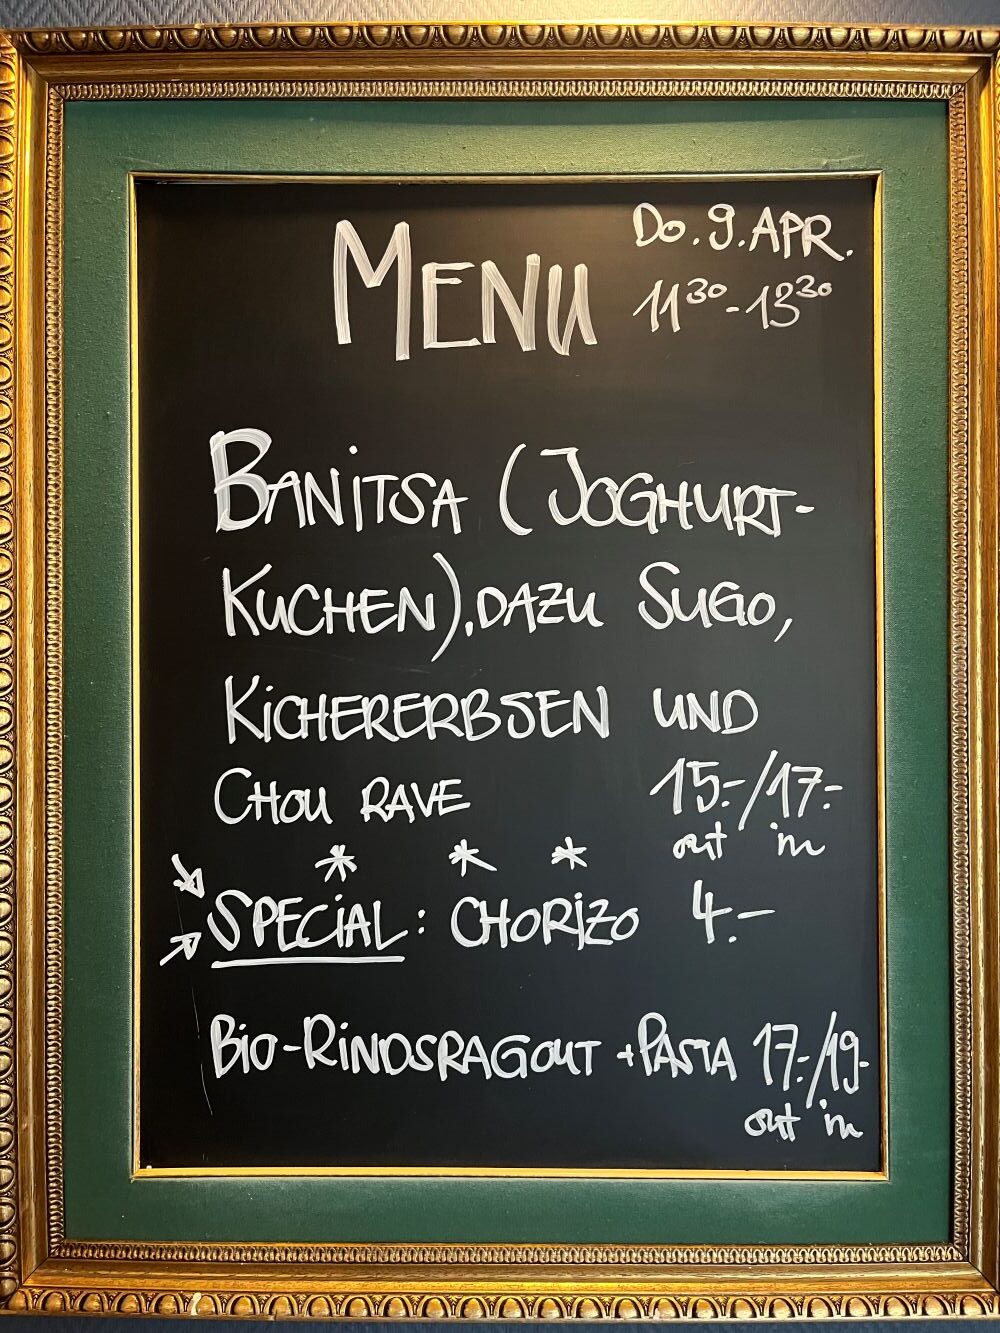 MENU
Do. 9. APR.
11³⁰-13³⁰
BANITSA (JOGHURT-
KUCHEN), DAZU SUGO,
KICHERERBSEN UND
CHOU RAVE 15.-/17.-
out in
* * *
SPECIAL: CHORIZO 4.-
BIO-RINDSRAGOUT + PASTA 17.-/19.-
out in